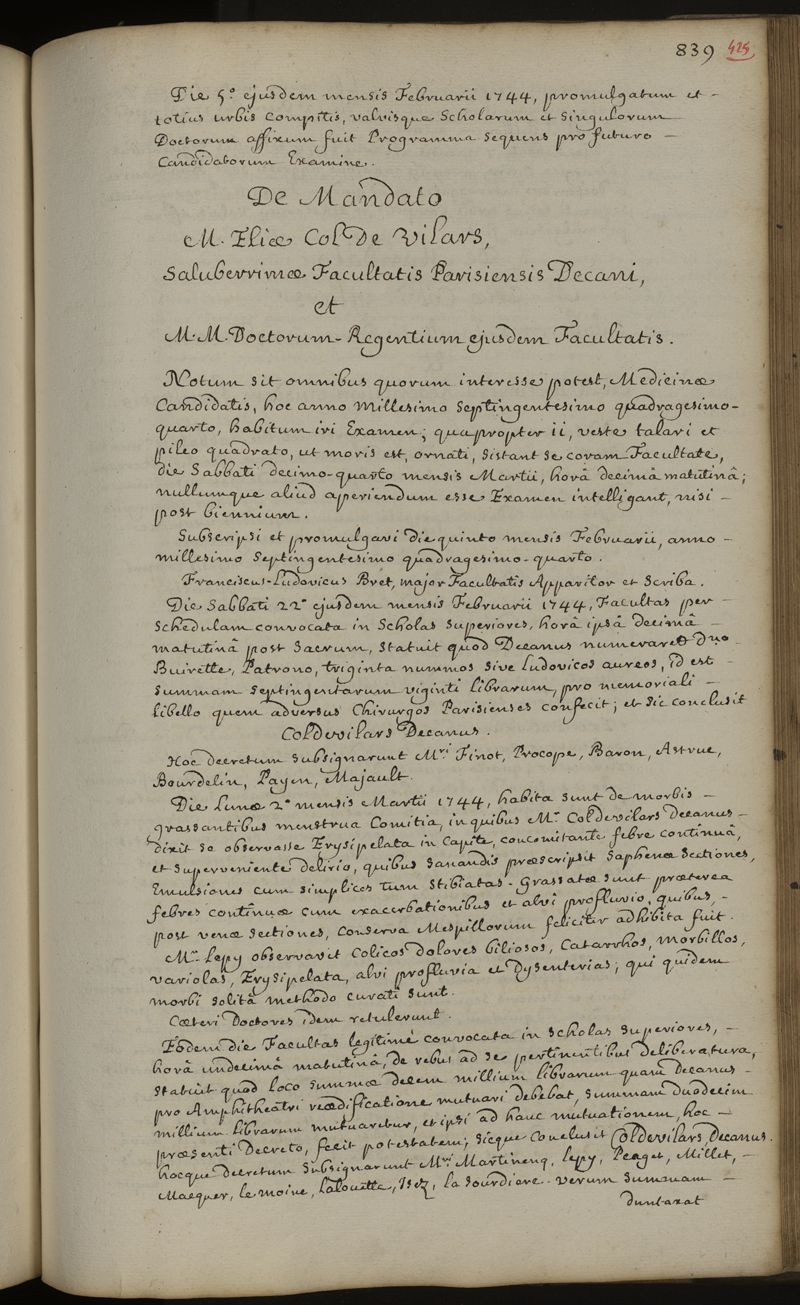 839 425
Die 5º ejusdem mensis Februarii 1744, promulgatum et -
totius urbis compitis, valvisque Scholarum et Singulorum
Doctorum affixum fuit Programma sequens pro futuro -
Candidatorum Examine.
De Mandato
M. Eliæ Col De Vilars,
Saluberrimæ Facultatis Parisiensis Decani,
et
M. M. Doctorum-Regentium ejusdem Facultatis.
Notum sit omnibus quorum interesse potest, Medicinæ
Candidatis, hoc anno Millesimo Septingentesimo quadragesimo-
quarto, habitum iri Examen; quapropter ii, veste talari et
pileo quadrato, ut moris est, ornati, sistant se coram Facultate,
die Sabbati decimo-quarto mensis Martii, horâ decimâ matutinâ;
nullumque aliud aperiendum esse Examen intelligant, nisi -
post biennium.
Subscripsi et promulgavi die quinto mensis Februarii, anno -
millesimo Septingentesimo quadragesimo-quarto.
Franciscus-Ludovicus Bret, major Facultatis Apparitor et Scriba.
Die Sabbati 22ª ejusdem mensis Februarii 1744, Facultas per -
Schedulam convocata in Scholas Superiores, horâ ipsâ decimâ -
matutinâ post Sacrum, statuit quod Decanus numeraret Dno -
Buirette, Patrono, triginta nummos sive Ludovicos aureos, id est -
Summam Septingentarum viginti librarum, pro memoriali -
libello quem adversus Chirurgos Parisienses confecit; et sic conclusit
Coldevilars Decanus.
Hoc decretum subsignarunt Mri Finot, Procope, Baron, Astrue,
Bourdelin, Payen, Majault.
Die Lunæ 2ª mensis Martii 1744, habita sunt de morbis -
grassantibus menstrua Comitia, in quibus Mr. Coldevilars Decanus -
dixit se observasse Erysipelata in Capite, concomitante febre continuâ,
et superveniente delirio, quibus sanandis præscripsit Saphenæ Sectiones,
Emulsiones cum simplices tum stibiatas. Grassatæ sunt præterea
febres continuæ cum exacerbationibus et alvi profluvio, quibus, -
post venæ sectiones, conserva Mespillorum feliciter adhibita fuit.
Mr. Lepy observavit Colicos dolores biliosos, Catarrhos, morbillos,
variolas, Erysipelata, alvi profluvia et Dysenterias; qui quidem
morbi solitâ methodo curati sunt.
Cæteri Doctores idem retulerunt.
Eodem die Facultas legitimè convocata in Scholas Superiores, -
horâ undecimâ matutinâ, de rebus ad se pertinentibus deliberatura,
statuit quod loco summæ decem millium librarum quam Decanus -
pro Amphitheatri reædificatione mutuari debebat, summam duodecim
millium librarum mutuaretur, et ipsi ad hanc mutuationem, hoc -
præsenti Decreto, fecit potestatem; sicque conclusit Coldevilars Decanus.
hocque decretum subsignarunt Mri Martinenq, Lepy, Peaget, Millet, -
Macquer, le moine, Lalouette, la Sourdiere. verum summam -
duntaxat